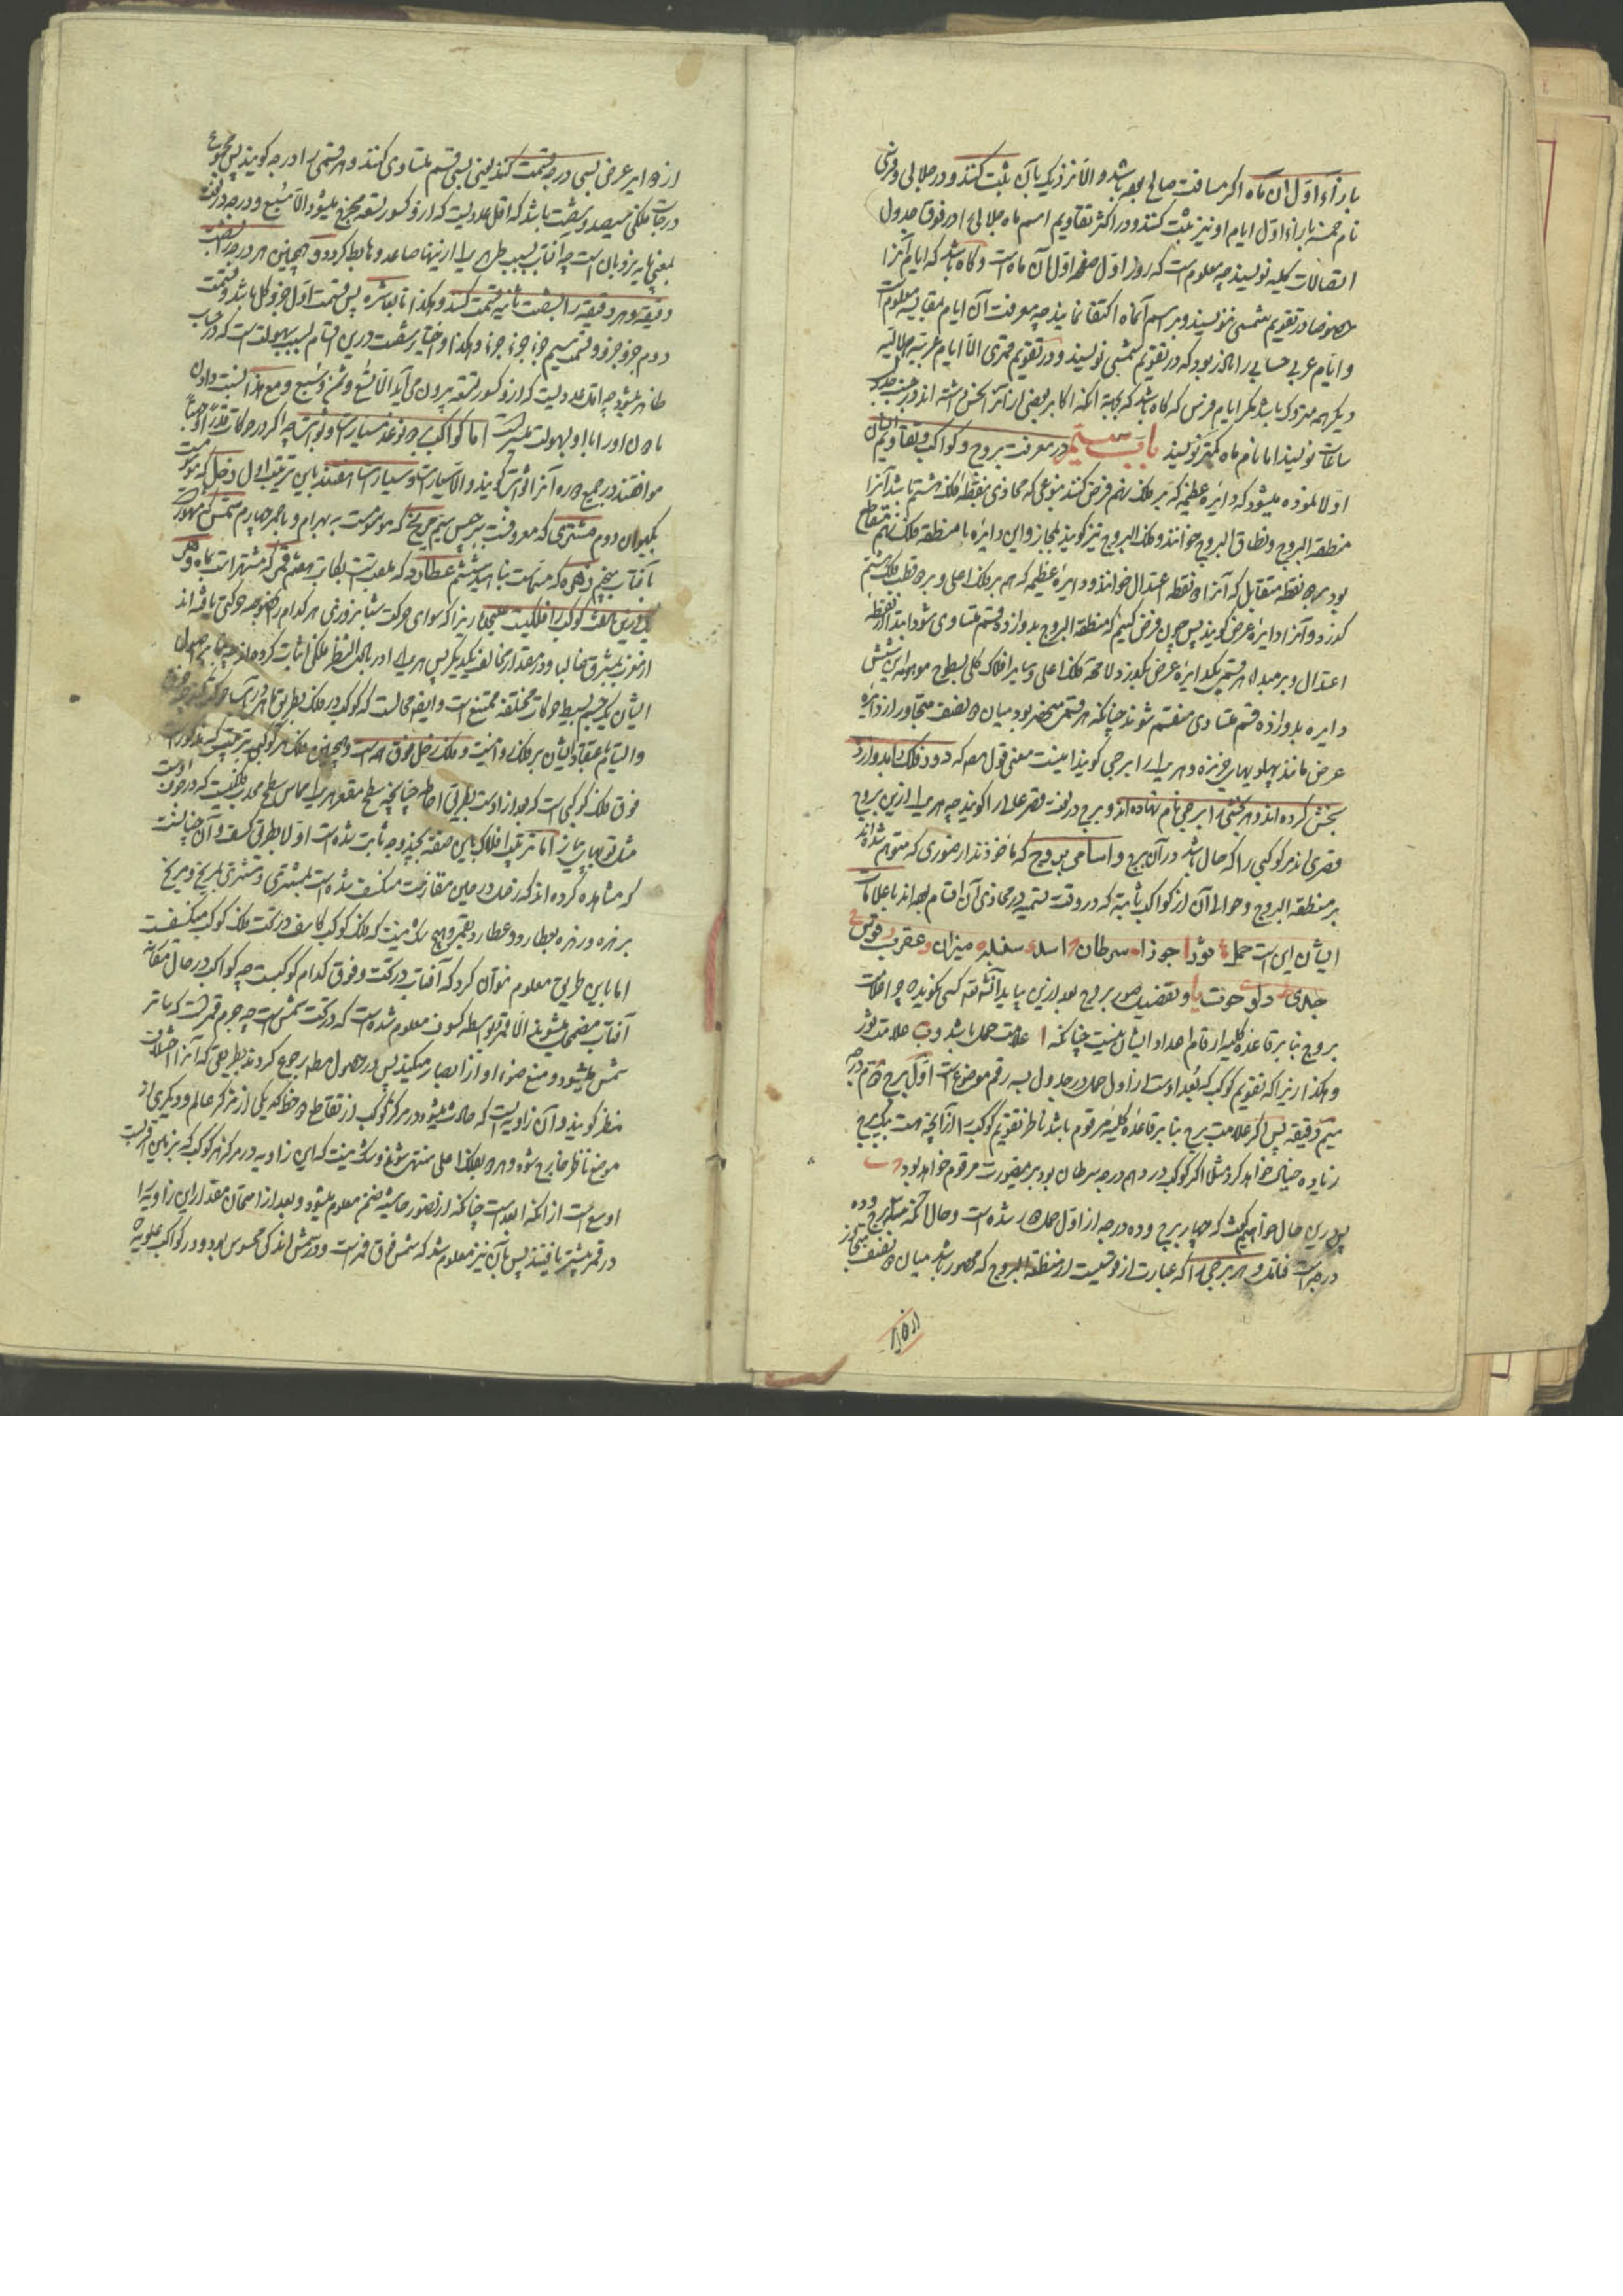 بازاء اول آن ماه اگر مسافت صالح بود باشد والا نزدیک بآن ثبت کنند و در جلالی و فرسی
نام خمسه بازاء اول ایام او نیز ثبت کنند و در اکثر تقاویم اسم ماه جلالی را در فوق جدول
اتصالات کلیه نویسند چه معلوم است که روز اول صفحه اول آن ماه است و گاه باشد که ایام آنرا
خصوصا در تقویم شمسی ننویسند و بر اسم آنماه اکتفا نمایند چه معرفت آن ایام بمقایسه معلوم است
و ایام عربی حسابی را ناگزیر بود که در تقویم شمسی نویسند و در تقویم قمری الا ایام عربیه هلالیه
دیگر همه متروک باشد مگر ایام فرس که گاه باشد که بجهة آنکه اکابر بعضی از آنرا نحس داشته اند در جنب جدول
ساعات نویسند اما نام ماه کمتر نویسند باب سیم در معرفت بروج و کواکب و تقاویم ایشان
اولا نموده میشود که دایره عظیمه که بر فلک نهم فرض کنند بنوعی که محاذی منطقه فلک هشتم باشد آنرا
منطقة البروج و نطاق البروج خوانند و فلک البروج نیز گویند بمجاز و این دایره با منطقه فلک نهم متقاطع
بود بر دو نقطه متقابل که آنرا دو نقطه اعتدال خوانند و دایره عظیمه که هم بر فلک اعلی و بر دو قطب فلک هشتم
گذرد و آنرا دایره عرض گویند پس چون فرض کنیم که منطقة البروج بدوازده قسم متساوی شود ابتدا از نقطه
اعتدال و بر مبدا هر قسمی یکدایره عرض بگذرد لا محاله فلک اعلی و سایر افلاک کلی بسطوح موهومه این شش
دایره بدوازده قسم متساوی منقسم شوند چنانکه هر قسمی منحصر بود میان دو نصف متجاور از دایره
عرض مانند پهلوهای خربزه و هر یک را برجی گویند اینست معنی قول مصه که دور فلک را بدوازده
بخش کرده اند و هر بخشی را برجی نام نهاده اند و برج در لغت قصر عالی را گویند چه هر یک ازین بروج
قصری اند مر کوکبی را که حال باشد در آن برج و اسامی بروج که ماخوذند از صوری که متوهم شده اند
بر منطقة البروج و حوالی آن از کواکب ثابته که در وقت تسمیه در محاذی آن اقسام بوده اند با علامات
ایشان این است حمل ثور ا جوزا سرطان اسد سنبله میزان عقرب قوس
جدی دلو حوت یا و تفصیل صور بروج بعد ازین بیاید آنشاالله کسی نگوید چرا علامات
بروج بنا بر قاعده کلیه ارقام اعداد ایشان نیست چنانکه ا علامت حمل باشد و ب علامت ثور
و هکذا زیرا که تقویم کوکب که بعد اوست از اول حمل در جدول بسه رقم موضوع است اول برج دوم درجه
سیم دقیقه پس اگر علامت برج بنا بر قاعده کلیه مرقوم باشد ناظر تقویم کوکب را از آنچه هست بیک برج
زیاده خیال خواهد کرد مثلا اگر کوکب در دهم درجه سرطان بود برینصورت مرقوم خواهد بود
پس درین حال خواهیم گفت که چهار برج و ده درجه از اول حمل دور شده است و حال آنکه سه برج و ده
درجه است فتامل و هر برجی را که عبارت از قوسیست از منطقة البروج که محصور باشد میان دو نصف متجاور
از دوایر عرض بسی درجه قسمت کنند یعنی بسی قسم متساوی کنند و هر قسمی را درجه گویند پس مجموع
درجات فلکی سیصد و شصت باشد که اقل عددیست که ازو کسور تسعه صحیح میشود الا سبع و درجه در لغت
بمعنی پایه نردبان است چه آفتاب بسبب طی هر یک از ینها صاعد و هابط گردد و همچنین هر درجه را بشصت
دقیقه و هر دقیقه را بشصت ثانیه قسمت کنند و هکذا تا بعاشره پس قسمت اول جزو کل باشد و قسمت
دوم جزو جزو و قسمت سیم جزء جزء جزء و هکذا و اختیار شصت درین اقسام بسبب سهولت است که در حساب
ظاهر میشود چه اقل عددیست که ازو کسور تسعه بیرون می آید الا تسع و ثمن و سبع و مع هذا نسبت دادن
مادون او را با او بسهولت میسر است اما کواکب بر دو نوعند سیارات و ثوابت چه اگر در حرکات قدرا و جهتا
موافقند در جمیع دوره آنرا ثوابت گویند و الا سیارات و سیارات هفتند باین ترتیب اول زحل که موسومست
بکیوان دوم مشتری که معروفست ببرجیس سیم مریخ که موسومست به بهرام و باحمر چهارم شمس که مشهورست
بآفتاب پنجم زهره که مسماست بناهید ششم عطارد که ملقب است بکاتب هفتم قمر که مشتهر است بماه و هر
یک ازین هفت کوکب را فلکیست علیحده زیرا که سوای حرکت شبانروزی هر کدام را بخصوصه حرکتی یافته اند
از مغرب بمشرق غالبا و در مقدار مخالف یکدیگر پس هر یک را در بادی النظر فلکی اثبات کرده اند چه بنابر اصول
ایشان یک جسم بسیط را حرکات مختلفه ممتنع است و ایضا محالست که کوکب در فلک بطریق ماهی در آب حرکت کند
والتیام باعتقاد ایشان بر فلک روا نیست و فلک زحل فوق همه است و همچنین فلک هر کوکبی بترتیب که مذکور است
فوق فلک کوکبی است که بعد از اوست بطریق احاطه چنانچه سطح مقعر هر یک مماس سطح محدب فلکیست که در جوف اوست
مثل توهای پیاز اما ترتیب افلاک باین صفت بچند وجه ثابت شده است اولا بطریق کسف و آن چنانست
که مشاهده کرده اند که زحل در حین مقارنت منکسف شده است بمشتری و مشتری بمریخ و مریخ
بزهره و زهره بعطارد و عطارد بقمر و هیچ شک نیست که فلک کوکب کاسف در تحت فلک کوکب منکسفست
اما باین طریق معلوم نتوان کرد که آفتاب در تحت و فوق کدام کوکبست چه کواکب در حال مقارنه
آفتاب مضمحل میشوند الا قمر بواسطه کسوف معلوم شده است که در تحت شمس است چه جرم قمر است که ساتر
شمس میشود و منع ضوء او از ابصار میکند پس در حصول مطلب رجوع کردند بطریقی که آنرا اختلاف
منظر گویند و آن زاویه ایست که حادث میشود در مرکز کوکب از تقاطع دو خط که یکی از مرکز عالم و دیگری از
موضع ناظر خارج شود و هر دو بفلک اعلی منتهی شوند و شک نیست که این زاویه در مرکز هر کوکب که بزمین اقربست
اوسع است از آنکه ابعد است چنانکه از تصور حاشیه ضمن معلوم میشود و بعد از امتحان مقدار این زاویه را
در قمر بیشتر یافتند پس بآن نیز معلوم شد که شمس فوق قمر است و در شمس اندکی محسوس بود و در کواکب علویه
از دوایر